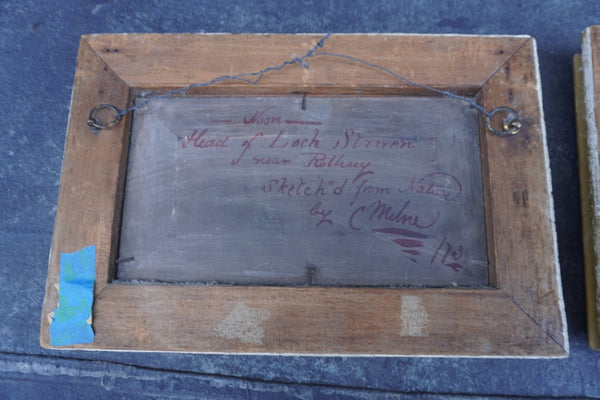 Head of Loch Striven
near Rothsey
Sketch'd from Nature
by C Milne
/73